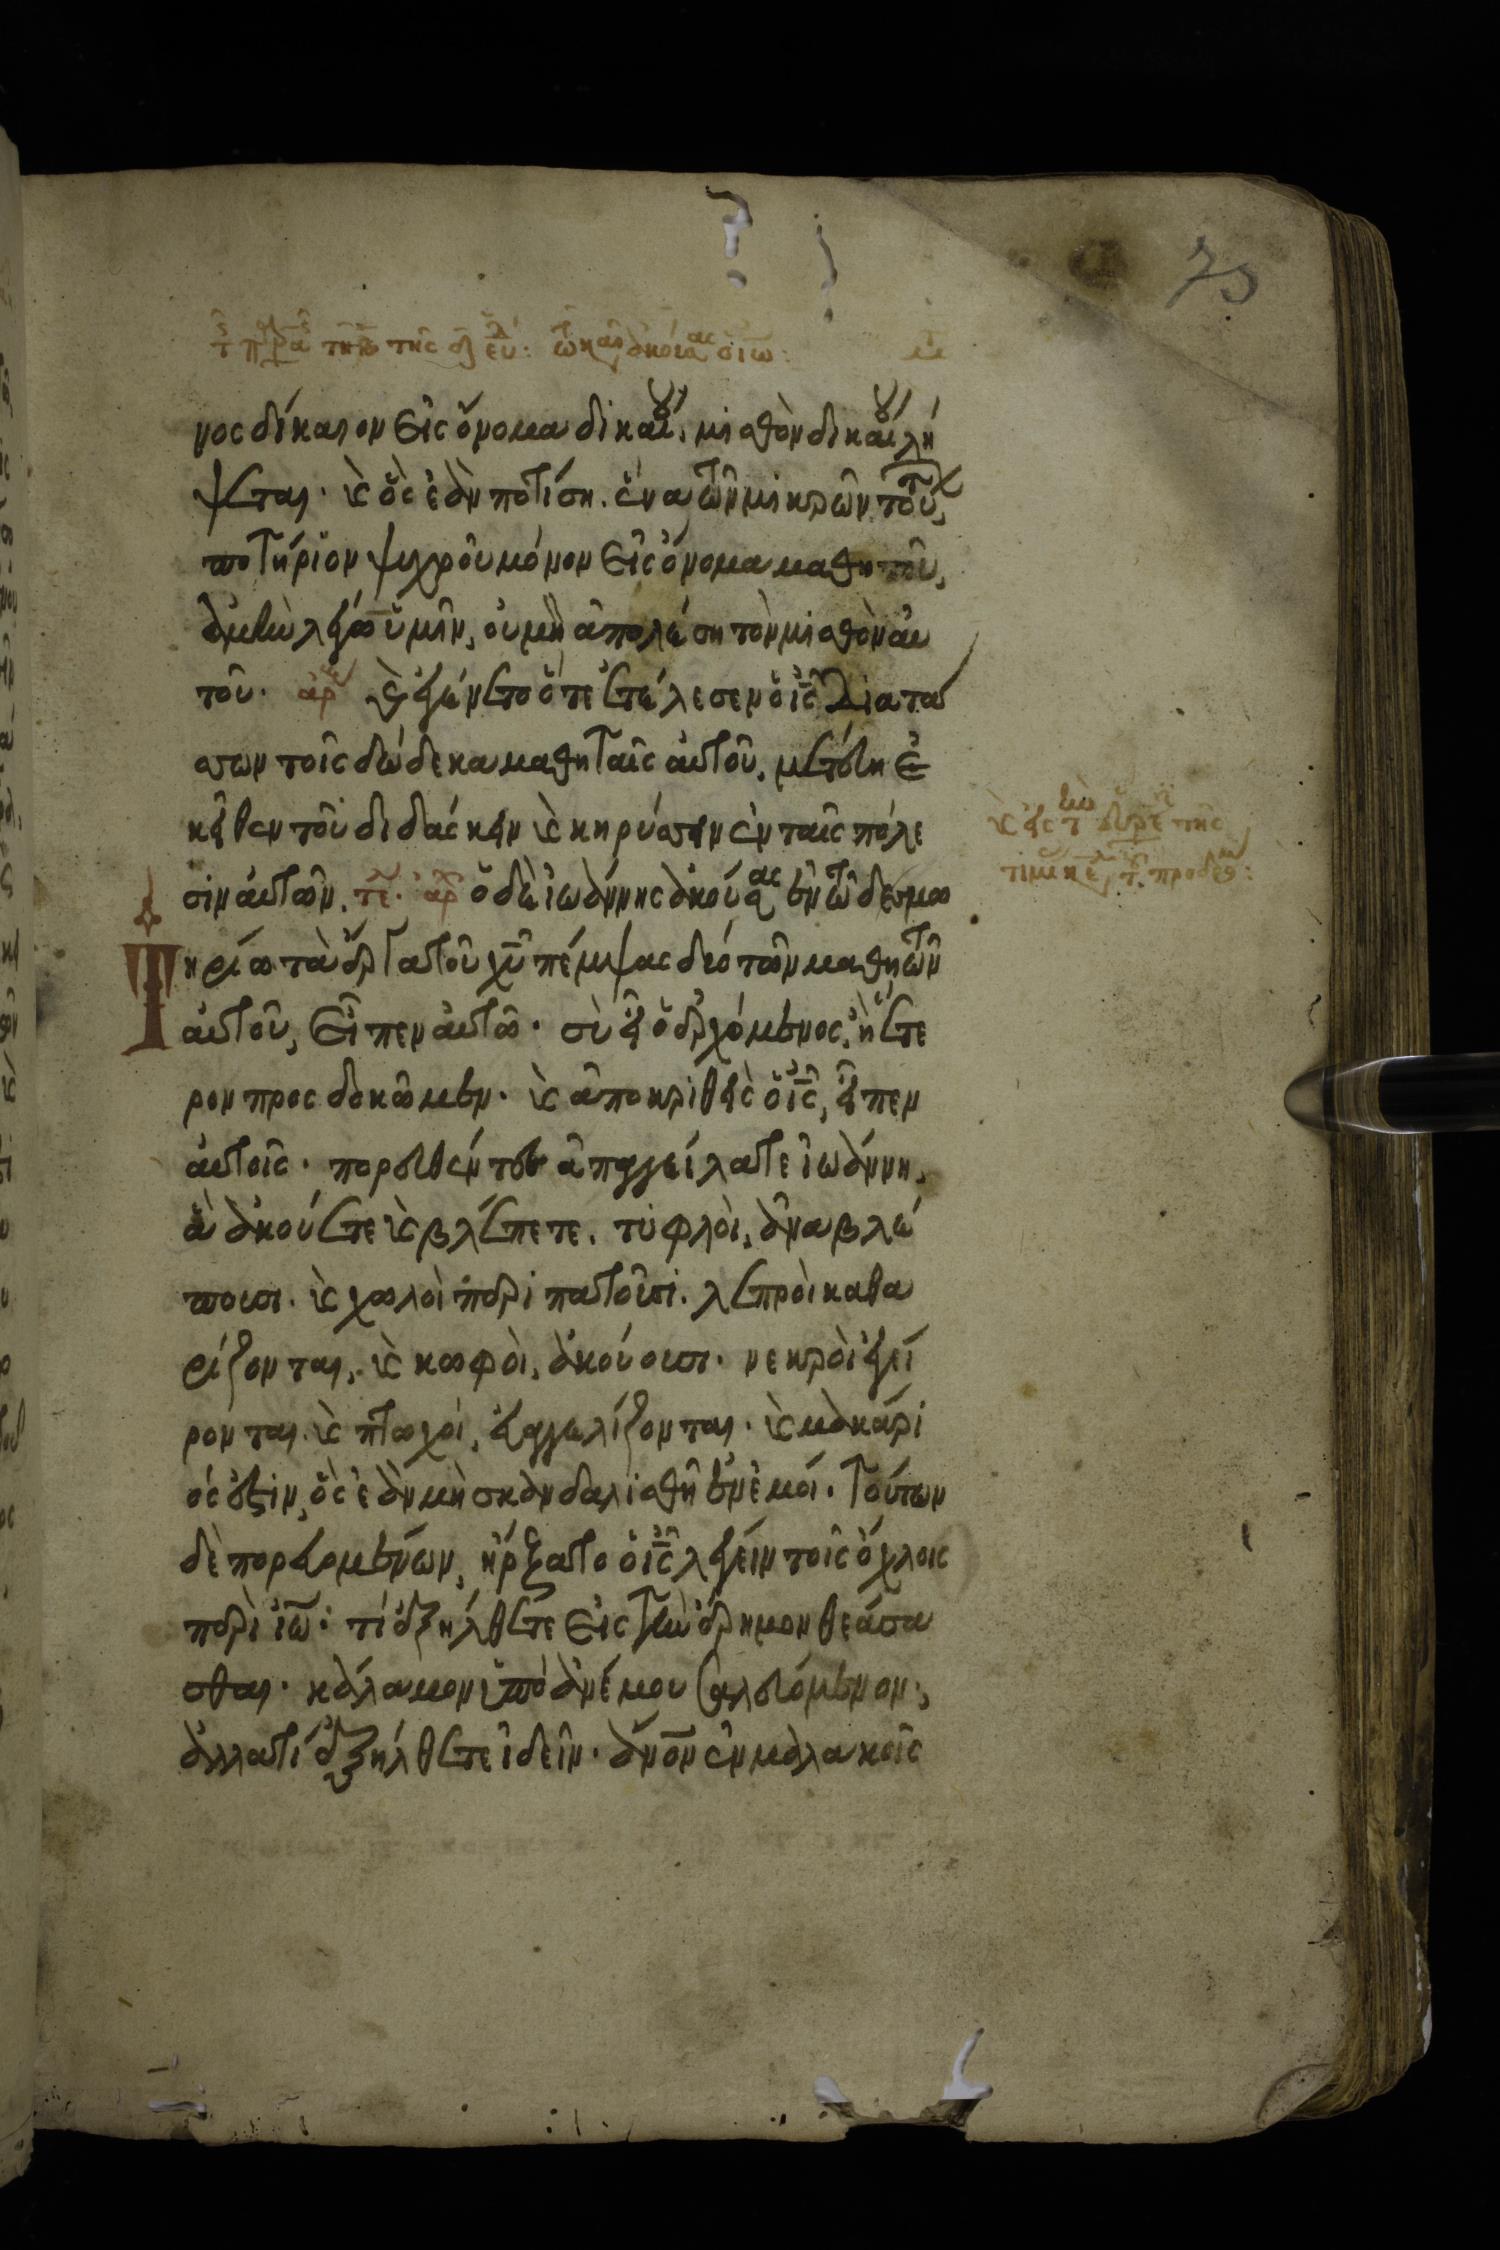 73
νος δίκαιον εἰς ὄνομα δικαίου, μισθὸν δικαίου λή
ψεται· καὶ ὃς ἐὰν ποτίση. ἕνα τῶν μικρῶν τούτων,
ποτήριον ψυχροῦ μόνον εἰς ὄνομα μαθητοῦ,
ἀμὴν λέγω ὑμῖν, οὐ μὴ ἀπολέση τὸν μισθὸν αυ
τοῦ· ἀρ καὶ ἐγένετο ὅτε ἐτέλεσεν ὁ ις διατα
σων τοῖς δώδεκα μαθηταῖς αὐτοῦ, μετέβη ἐ
κεῖθεν τοῦ διδάσκειν καὶ κηρύσσειν ἐν ταῖς πόλε
σιν αὐτῶν. τε· ἀρ ὁ δὲ ἰωάννης ἀκούσας ἐν τῶ δεσμω
Τηρίω τὰ ἔργα τοῦ χυ πέμψας δύο τῶν μαθητῶν
αὐτοῦ, εἶπεν αὐτῶ· σὺ εἶ ὁ ἐρχόμενος, ἢ ἕτε
ρον προσδοκῶμεν· καὶ ἀποκριθεὶς ὁ ις, εἶπεν
αὐτοῖς· πορευθέντες ἀπαγγείλατε ἰωάννη,
ἃ ἀκούετε καὶ βλέπετε. τυφλοὶ, ἀναβλέ
πουσι. καὶ χωλοὶ περιπατοῦσι. λεπροὶ καθα
ρίζονται, καὶ κωφοὶ, ἀκούουσι· νεκροὶ ἐγεί
ρονται καὶ πτωχοὶ, εὐαγγελίζονται· καὶ μακάρι
ός ἐστιν, ὃς ἐὰν μὴ σκανδαλισθῆ ἐν ἐμοί. Τούτων
δὲ πορευομένων, ἤρξατο ὁ ις λέγειν τοῖς ὄχλοις
περὶ ἰω· τί ἐξήλθετε εἰς τὴν ἔρημον θεάσα
σθαι· κάλαμον ὑπὸ ἀνέμου σαλευόμενον·,
ἀλλα τί ἐξήλθετε ἰδεῖν· ἄνον ἐν μαλακοῖς